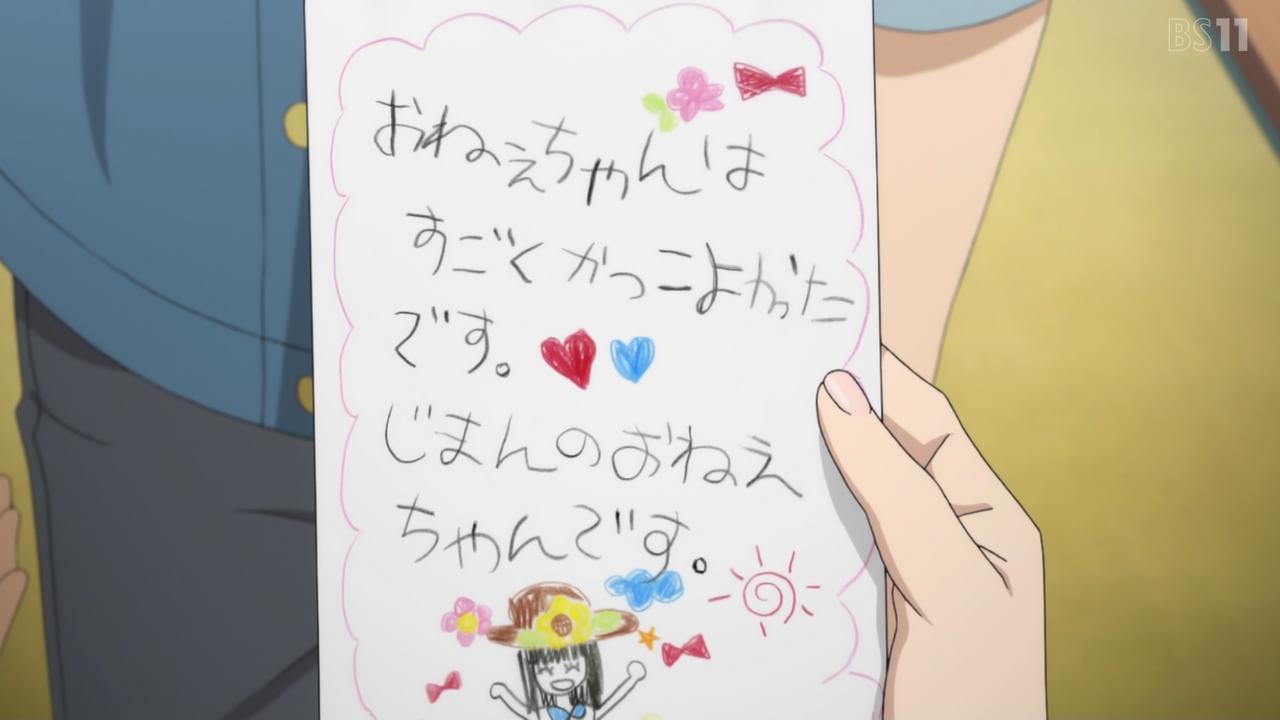 BS11
おねぇちゃんは
すごくかっこよかった
です。
じまんのおねえ
ちゃんです。